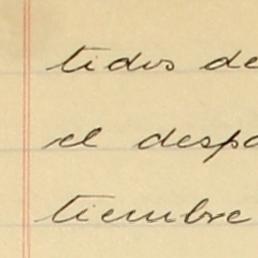 tidos de
el despa
tiembre